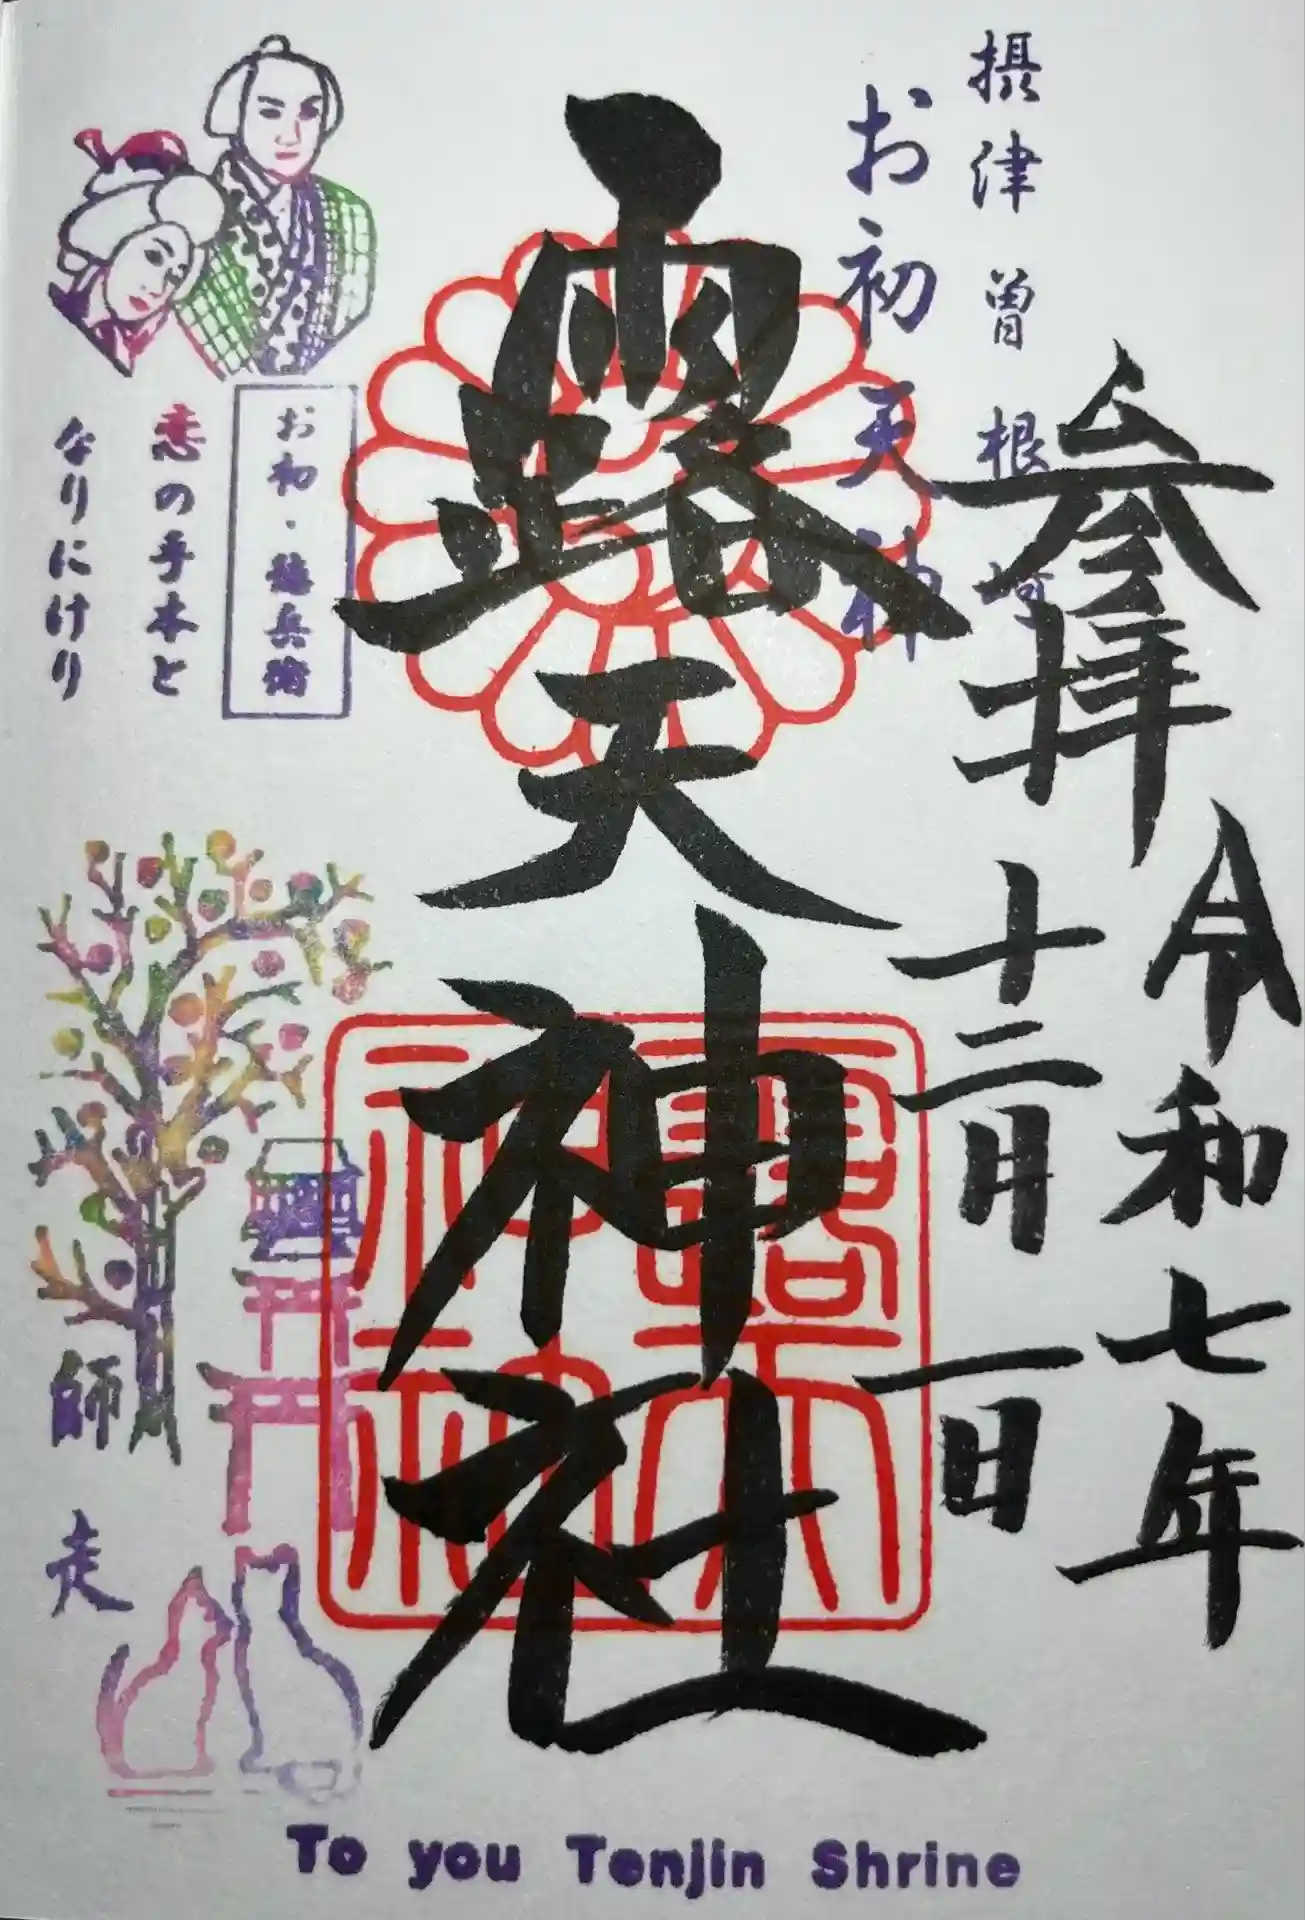 摂津曽根崎
お初天神
参拝
令和七年
十二月一日
露天神社
露天
神社
お初・徳兵衛
恋の手本と
なりにけり
師走
To you Tenjin Shrine